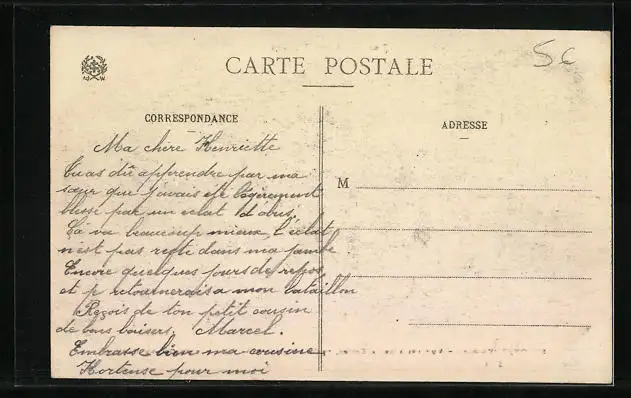 5c
CARTE POSTALE
CORRESPONDANCE
Ma chère Henriette
Tu as dû apprendre par ma
sœur que j'avais été légèrement
blessé par un éclat d'obus.
Ça va beaucoup mieux, l'éclat
n'est pas resté dans ma jambe
Encore quelques jours de repos
et je retournerais a mon bataillon
Reçois de ton petit cousin
de bons baisers. Marcel.
Embrasse bien ma cousine
Hortense pour moi
ADRESSE
M